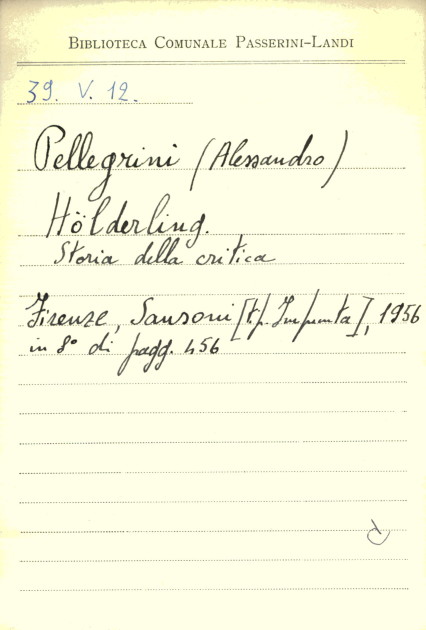 BIBLIOTECA COMUNALE PASSERINI-LANDI
39. V. 12.
Pellegrini (Alessandro)
Hölderling.
Storia della critica
Firenze, Sansoni [tip. Impronta], 1956
in 8° di pagg. 456